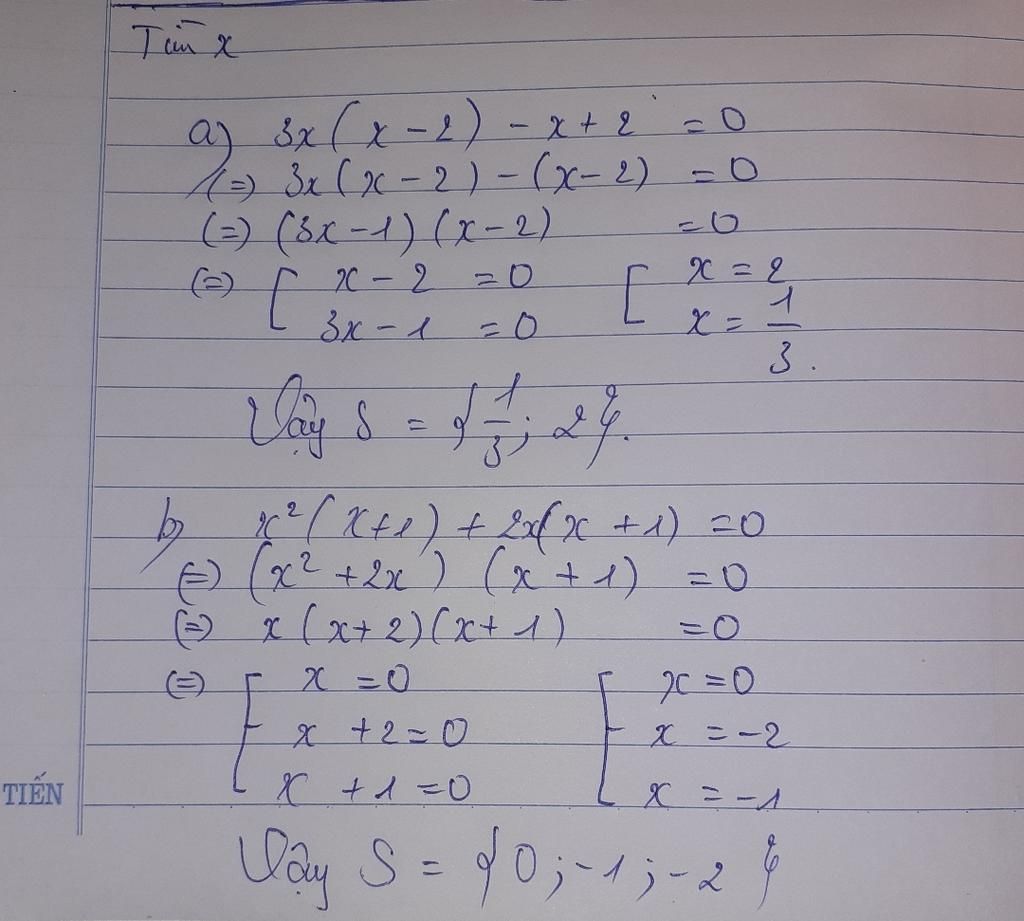 Tìm x
a) 3x(x-2) - x + 2 = 0
(=) 3x(x-2) - (x-2) = 0
(=) (3x-1)(x-2) = 0
(=) [ x - 2 = 0 [ x = 2
3x - 1 = 0 x = 1/3.
Vậy S = {1/3; 2}.
b) x²(x+1) + 2x(x+1) = 0
(=) (x² + 2x) (x+1) = 0
(=) x(x+2)(x+1) = 0
(=) [ x = 0 [ x = 0
x + 2 = 0 x = -2
x + 1 = 0 x = -1
TIẾN
Vậy S = {0; -1; -2}